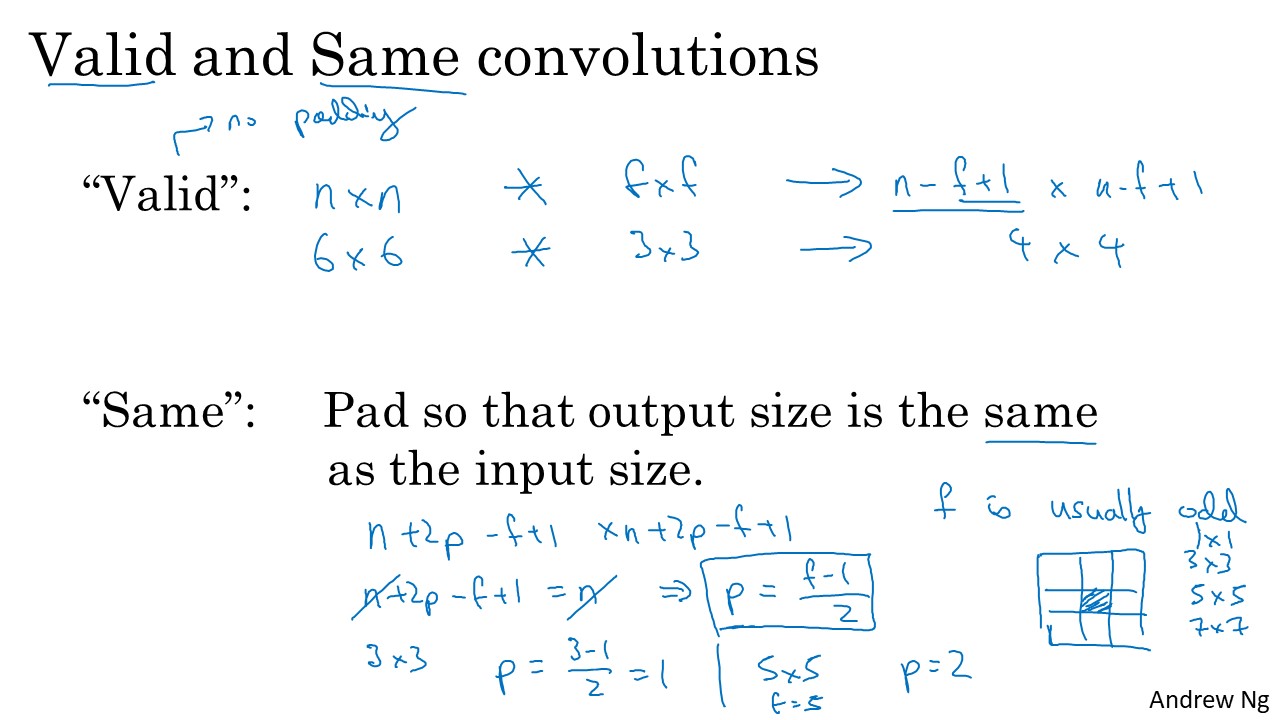 Valid and Same convolutions
→ no padding
“Valid”: n × n * f × f → n - f + 1 × n - f + 1
6 × 6 * 3 × 3 → 4 × 4
“Same”: Pad so that output size is the same
as the input size.
n + 2p - f + 1 × n + 2p - f + 1
n + 2p - f + 1 = n ⇒ p = (f-1)/2
3 × 3 p = (3-1)/2 = 1 | 5 × 5 p = 2
f = 5
f is usually odd
1 × 1
3 × 3
5 × 5
7 × 7
Andrew Ng